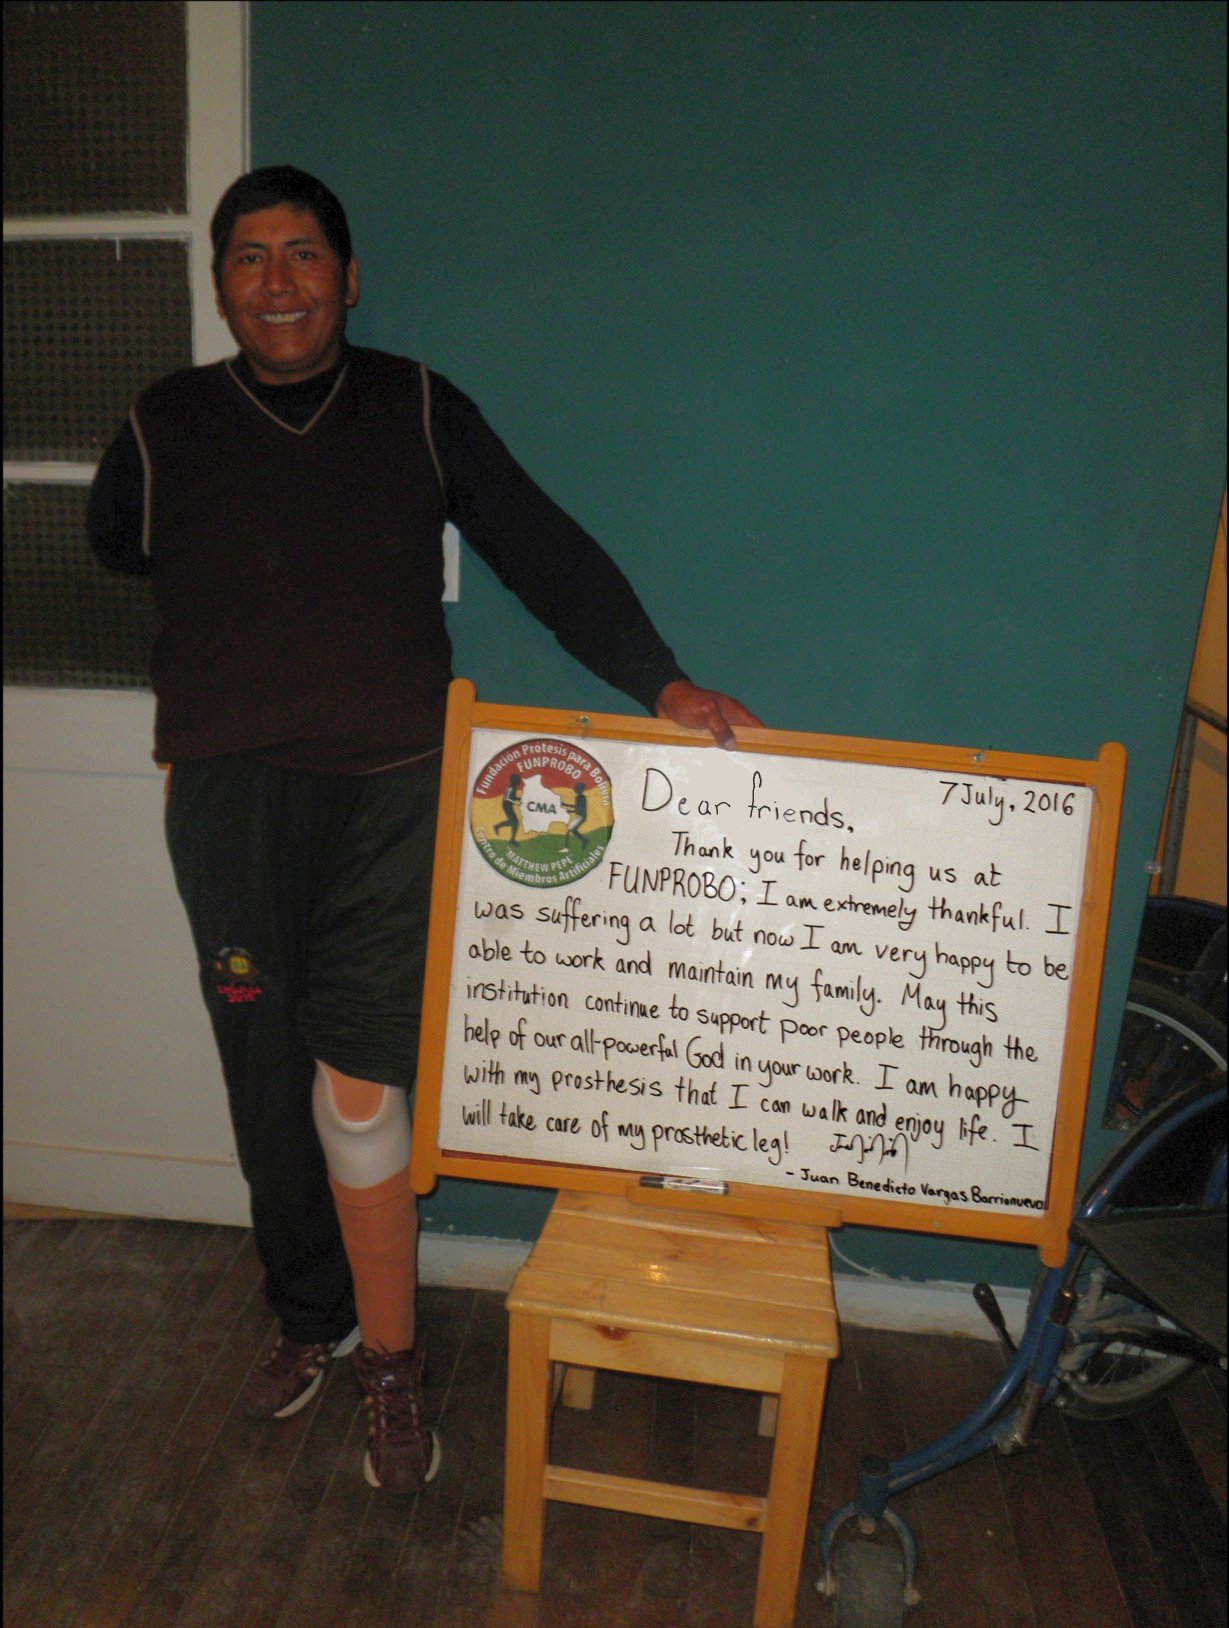 Fundación Prótesis para Bolivia
FUNPROBO
CMA
MATTHEW PEPE
Centro de Miembros Artificiales
7 July, 2016
Dear friends,
Thank you for helping us at
FUNPROBO; I am extremely thankful. I
was suffering a lot but now I am very happy to be
able to work and maintain my family. May this
institution continue to support poor people through the
help of our all-powerful God in your work. I am happy
with my prosthesis that I can walk and enjoy life. I
will take care of my prosthetic leg!
- Juan Benedicto Vargas Barrionuevo